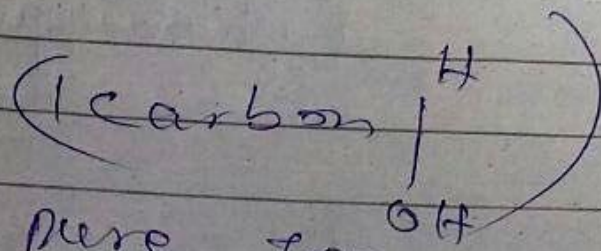 (1 carbon H
OH)
pure